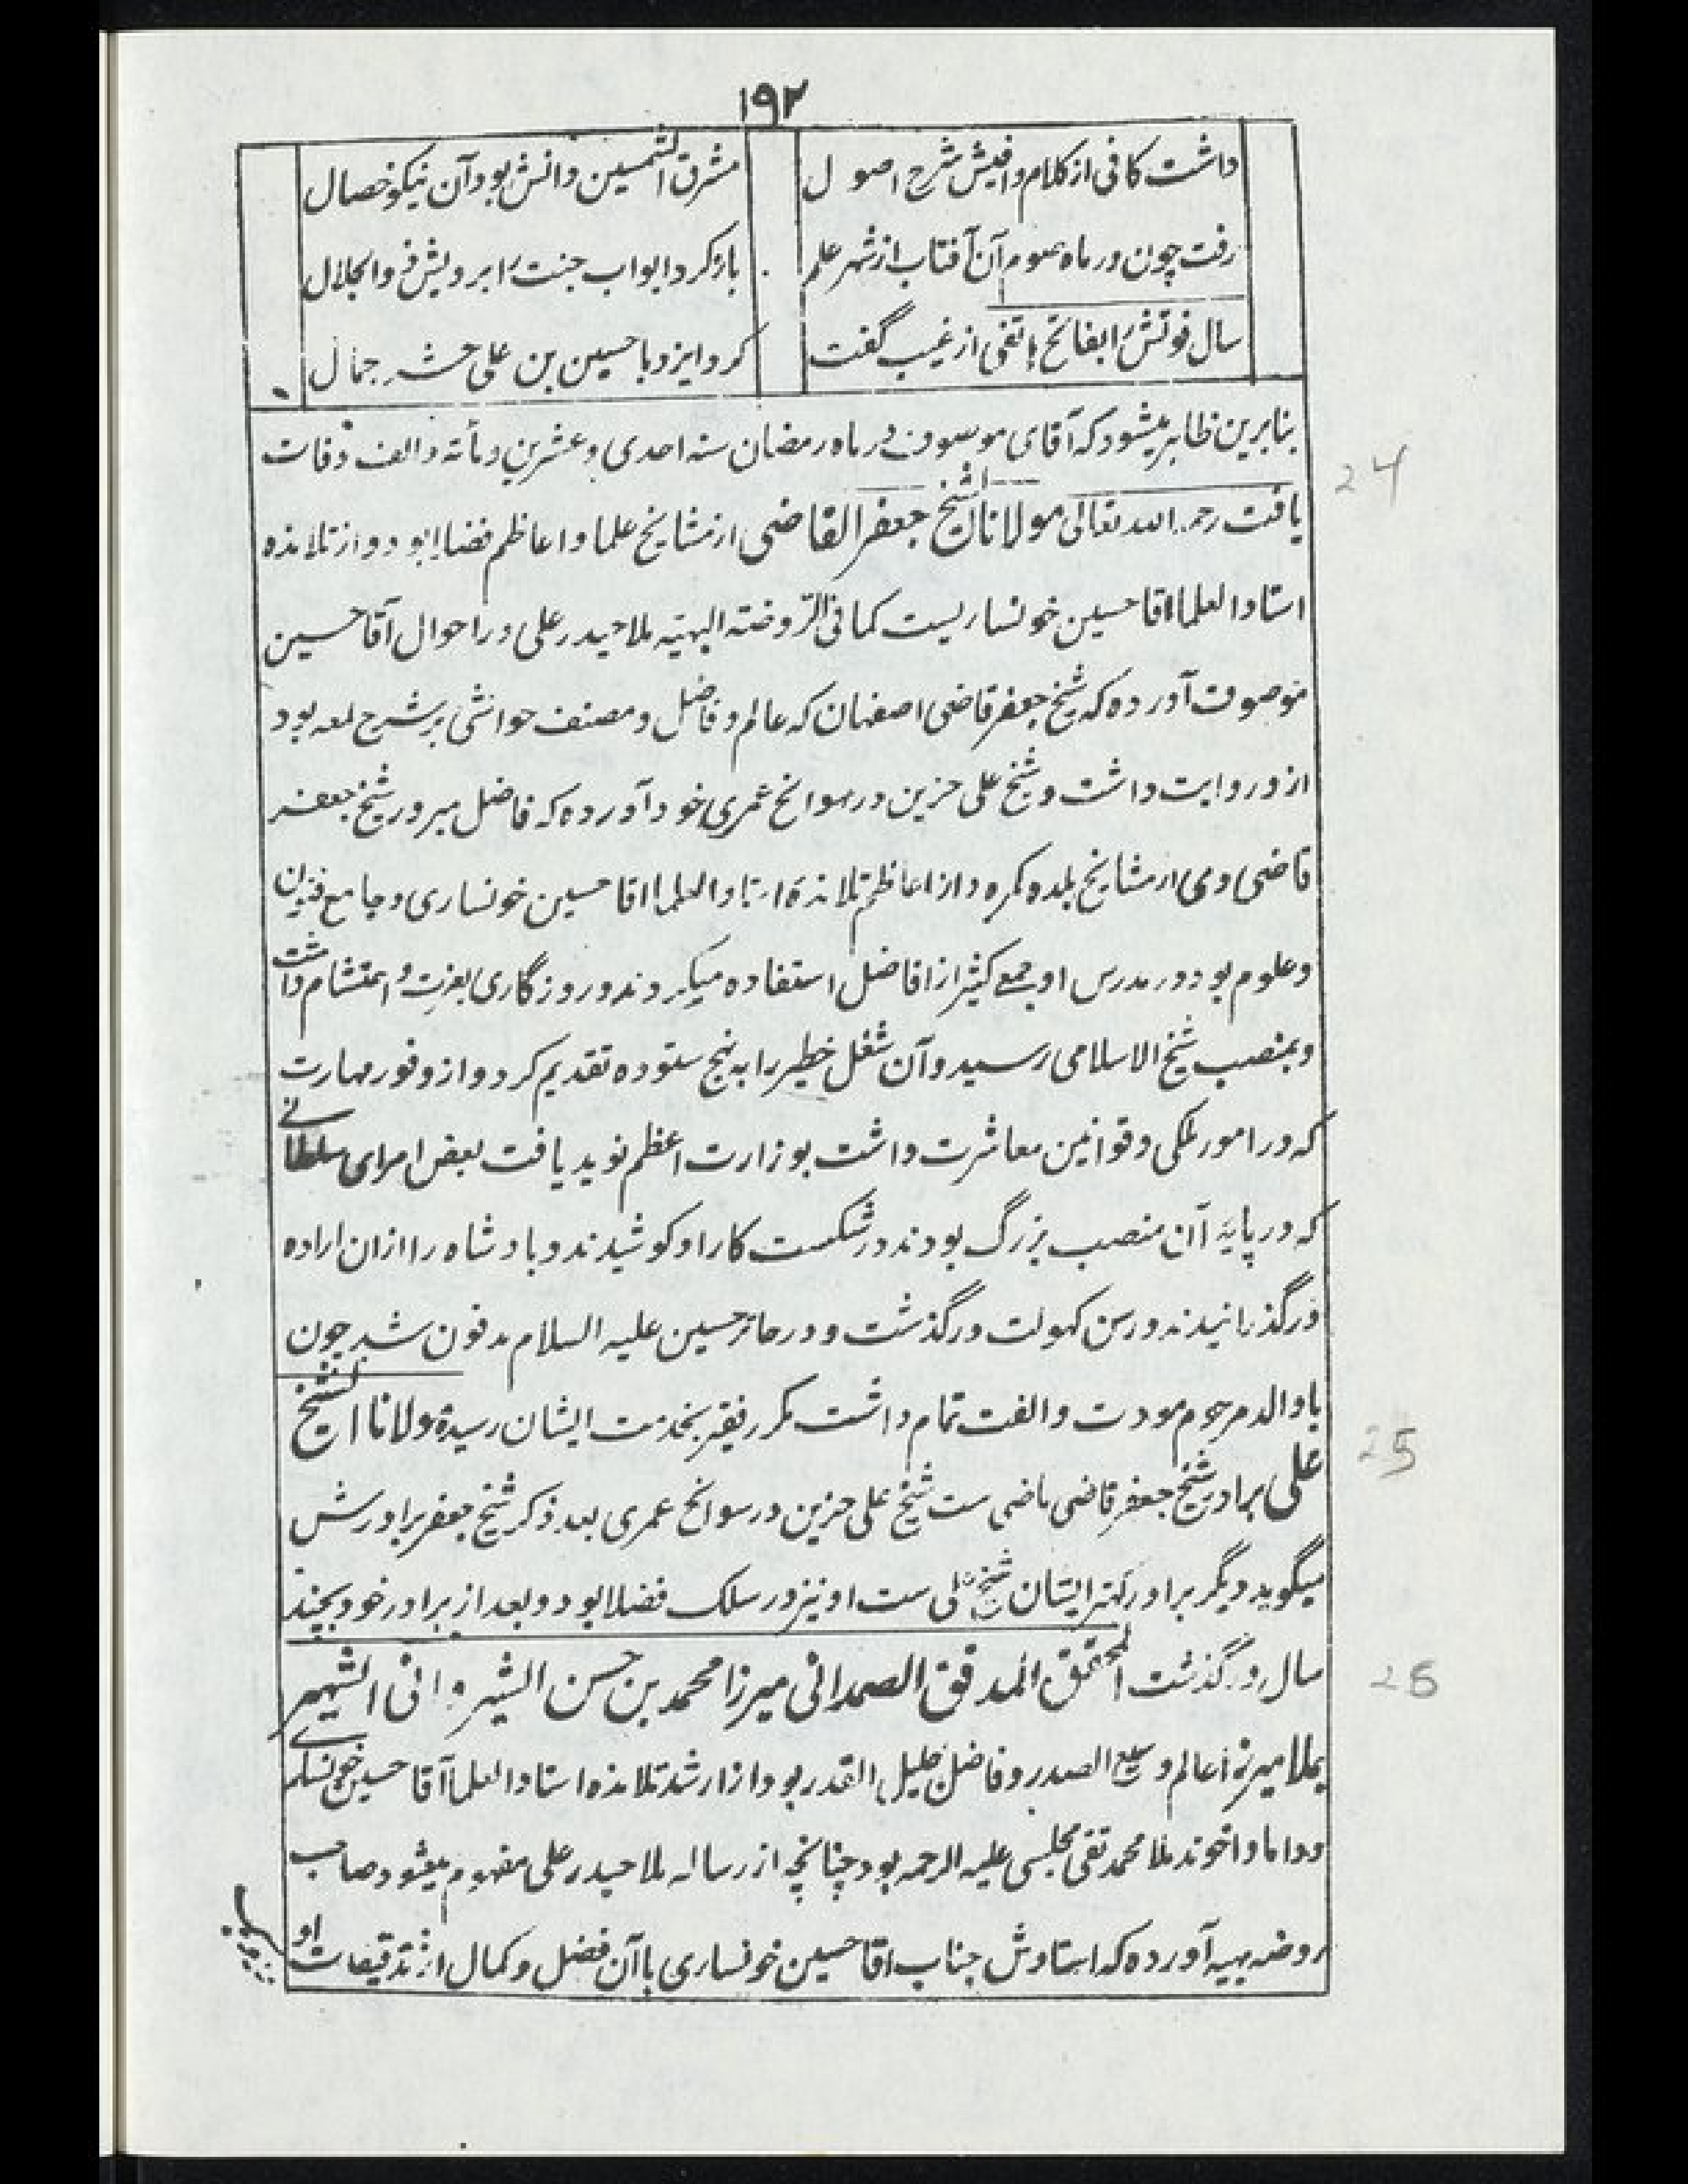 ۱۹۲
داشت کافی از کلام وافیش شرح اصول
مشرق الشمسین دانش بود آن نیکو خصال
رفت چون در ماه صوم آن آفتاب از شهر علم
باز کرد ابواب جنت را برویش ذو الجلال
سال فوتش را بفاتح هاتفی از غیب گفت
کرد ایزد با حسین بن علی حشر جمال
بنابرین ظاهر میشود که آقای موصوف در ماه رمضان سنه احدی و عشرین و مأته و الف وفات
یافت رحمه الله تعالی مولانا الشیخ جعفر القاضی از مشایخ علما و اعاظم فضلا بود و از تلامذه
استاد العلما اقا حسین خونساریست کما فی الروضة البهیه ملا حیدر علی در احوال آقا حسین
موصوف آورده که شیخ جعفر قاضی اصفهان که عالم و فاضل و مصنف حواشی بر شرح لمعه بود
از و روایت داشت و شیخ علی حزین در سوانح عمری خود آورده که فاضل مبرور شیخ جعفر
قاضی وی از مشایخ بلده کمره و از اعاظم تلامذه استاد العلما اقا حسین خونساری و جامع فنون
و علوم بود در مدرس او جمعی کثیر از افاضل استفاده میکردند و روزگاری بعزت و احتشام داشت
و بمنصب شیخ الاسلامی رسید و آن شغل خطیر را به نهج ستوده تقدیم کرد و از وفور مهارت
که در امور ملکی و قوانین معاشرت داشت بوزارت اعظم نوید یافت بعض امرای سلطانے
که در پایهٔ آن منصب بزرگ بودند در شکست کار او کوشیدند و بادشاه را ازان اراده
درگذرانیدند در سن کهولت درگذشت و در حائر حسین علیه السلام مدفون شد چون
با والد مرحوم مودت و الفت تمام داشت مکرر فقیر بخدمت ایشان رسیده مولانا الشیخ
علی برادر شیخ جعفر قاضی ماضی ست شیخ علی حزین در سوانح عمری بعد ذکر شیخ جعفر برادرش
میگوید دیگر برادر کهتر ایشان شیخ علی ست او نیز در سلک فضلا بود و بعد از برادر خود بچند
سال درگذشت المحقق المدقق الصمدانی میرزا محمد بن حسن الشیروانی الشهیر
بملا میرزا عالم وسیع الصدر و فاضل جلیل القدر بود از ارشد تلامذه استاد العلما آقا حسین خونساری
و داماد اخوند ملا محمد تقی مجلسی علیه الرحمه بود چنانچه از رساله ملا حیدر علی مفهوم میشود صاحب
روضه بهیه آورده که استادش جناب اقا حسین خونساری با آن فضل و کمال از تدقیقات او
24
25
26